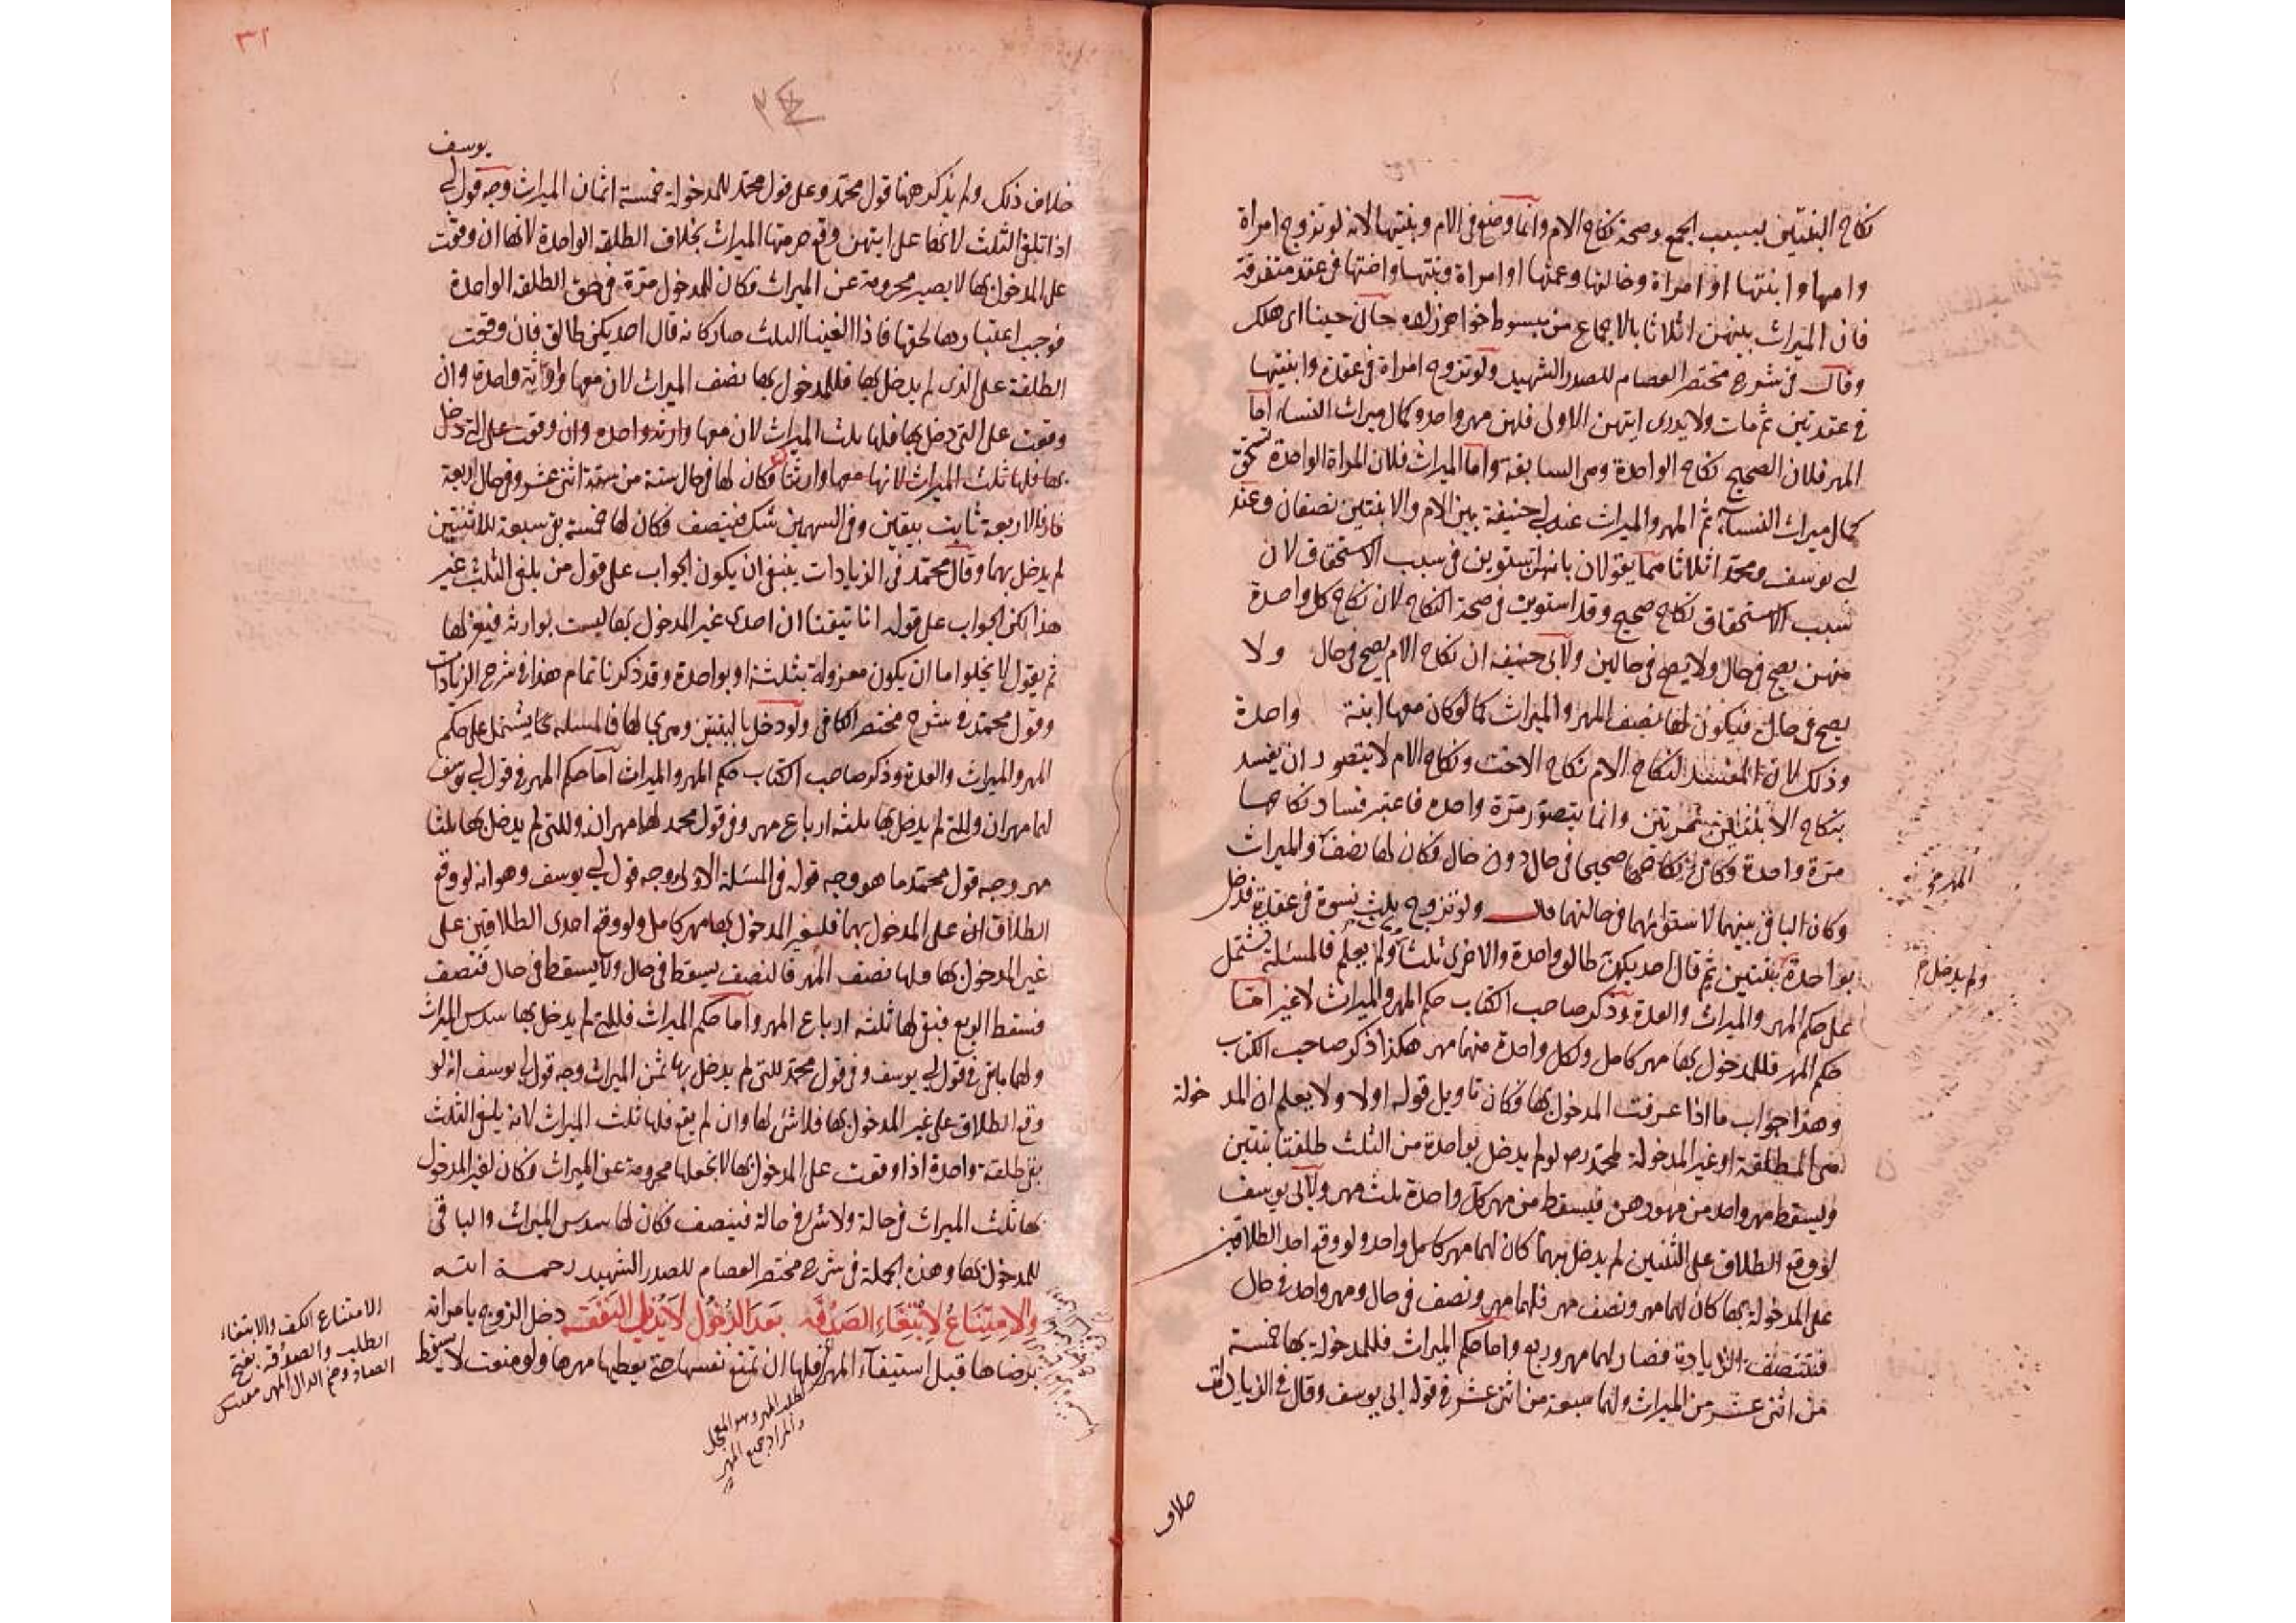 نكاح البنتين بسبب الجمع وصحة نكاح الام وانما وضع في الام وبنتيها لانه لو تزوج امراة
وامها وابنتها او امراة وخالتها وعمتها او امراة وبنتها واختها في عقد متفرقة
فان الميراث بينهن اثلاثا بالاجماع من مبسوط خواهرزاده حان حينا اى هلك
وقال في شرح مختصر العصام للصدر الشهيد ولو تزوج امراة في عقدة وابنتيها
في عقدتين ثم مات ولا يدرى ايتهن الاولى فلهن مهر واحد وكمال ميراث النساء اما
المهر فلان الصحيح نكاح الواحدة وهى السابقة واما الميراث فلان المراة الواحدة تستحق
كمال ميراث النساء ثم المهر والميراث عند ابى حنيفة بين الام والابنتين نصفان وعند
ابى يوسف ومحمد اثلاثا هما يقولان بانهن استوين في سبب الاستحقاق لان
سبب الاستحقاق نكاح صحيح وقد استوين في صحة النكاح لان نكاح كل واحدة
منهن يصح في حال ولا يصح في حالين ولابى حنيفه ان نكاح الام يصح في حال ولا
يصح في حال فيكون لها نصف المهر والميراث كما لو كان معها ابنة واحدة
وذلك لان المفسد لنكاح الام نكاح الاخت ونكاح الام لا يتصور ان يفسد
بنكاح الابنتين مرتين وانما يتصور مرة واحده فاعتبر فساد نكاحها
مرة واحدة وكان نكاحها صحيحا في حال دون حال فكان لها نصف والميراث
المهر صح
وكان الباقي بينهما لاستوائهما في حالتهما قال ولو تزوج بثلث نسوة في عقدة فدخل
بواحدة بنتين ثم قال احديكن طالق واحدة والاخرى ثلثا ولم يعلم فالمسئلة تشتمل
ولم يدخل
على حكم المهر والميراث والعدة وذكر صاحب الكتاب حكم المهر والميراث لا غير اما
حكم المهر فللمدخول بها مهر كامل ولكل واحدة منهما مهر هكذا ذكر صاحب الكتاب
وهذا جواب ما اذا عرفت المدخول بها فكان تاويل قوله اولا ولا يعلم ان المدخولة
هى المطلقة او غير المدخولة لمحمد رح لو لم يدخل بواحدة من الثلث طلقتا بنتين
ويسقط مهر واحد من مهورهن فيسقط من مهر كل واحدة ثلث مهر ولابى يوسف
لو وقع الطلاق على الثنتين لم يدخل بهما كان لهما مهر كامل واحد ولو وقع احد الطلاقين
على المدخولة بها كان لهما مهر ونصف مهر فلهما مهر ونصف في حال ومهر واحد في حال
فتتنصف الزيادة فصار لهما مهر وربع واما حكم الميراث فللمدخولة بها خمسة
من اثنى عشر من الميراث ولهما سبعة من اثنى عشر في قول ابى يوسف وقال في الزيادات
خلاف
٣١
يوسف
خلاف ذلك ولم يذكر ههنا قول محمد وعلى قول محمد للمدخولة خمسة اثمان الميراث وجه قول ابى
اذا تلغى الثلث لانها على ايتهن وقع حرمتها الميراث بخلاف الطلقة الواحدة لانها ان وقعت
على المدخول بها لا يصير محرومة عن الميراث فكان للمدخول مزية في حق الطلقة الواحدة
فوجب اعتبارها لحقها فاذا الغينا الثلث صار كانه قال احديكن طالق فان وقعت
الطلقة على الذى لم يدخل بها فللمدخول بها نصف الميراث لان معها وارثة واحدة وان
وقعت على التى دخل بها فلها ثلث الميراث لان معها وارثة واحده وان وقعت على التى دخل
بها فلها ثلث الميراث لانها معها وارثتان فكان لها في حال ستة من ستة اثنى عشر وفي حال اربعة
فاذا الاربعة ثابت بيقين وفي السهمين شك فينصف فكان لها خمسة بقى سبعة للاثنتين
لم يدخل بهما وقال محمد في الزيادات ينبغى ان يكون الجواب على قول من يلغى الثلث غير
هذا لكن الجواب على قوله انا تيقنا ان احدى غير المدخول بها ليست بوارثة فيقع لها
ثم يقول لا يخلو اما ان يكون معزولة بثلثة او بواحدة وقد ذكرنا تمام هذا في شرح الزيادات
وقول محمد في شرح مختصر الكافى ولو دخل بالبنتين وهى بحالها فالمسئلة مما يشتمل على حكم
المهر والميراث والعدة وذكر صاحب الكتاب حكم المهر والميراث اما حكم المهر في قول ابى يوسف
لهما مهران وللتى لم يدخل بها ثلثه ارباع مهر وفي قول محمد لهما مهران وللتى لم يدخل بها ثلثا
مهر وجه قول محمد ما هو وجه قوله في المسئلة الاولى وجه قول ابى يوسف وهو انه لو وقع
الطلاقان على المدخول بهما فلغير المدخول بها مهر كامل ولو وقع احدى الطلاقين على
غير المدخول بها فلها نصف المهر فالنصف يسقط في حال ولا يسقط في حال فتنصف
فسقط الربع فبقى لها ثلثه ارباع المهر واما حكم الميراث فللتى لم يدخل بها سدس الميراث
ولهما ما بقى في قول ابى يوسف وفي قول محمد للتى لم يدخل بها ثمن الميراث وجه قول ابى يوسف انه لو
وقع الطلاق على غير المدخول بها فلا شئ لها وان لم يقع فلها ثلث الميراث لانه يلغى الثلث
بقى طلقة واحدة اذا وقعت على المدخول بها لا تجعلها محرومة عن الميراث وكان لغير المدخول
بها ثلث الميراث في حالة ولا شئ في حالة فينصف فكان لها سدس الميراث والباقي
للمدخول بها وهذه الجملة في شرح مختصر العصام للصدر الشهيد رحمة الله
والامتناع لابتغاء الصدقه بعد الدخول لا يزيل النفقة دخل الزوج بامراته
برضاها قبل استيفاء المهر فلها ان تمنع نفسها حتى يعطيها مهرها ولو منعت لا يسقط
الامتناع الكف والابتغاء
الطلب والصدقه بفتح
الصاد وضم الدال المهر
لطلب المهر وهو المعجل
والمراد جميع المهر